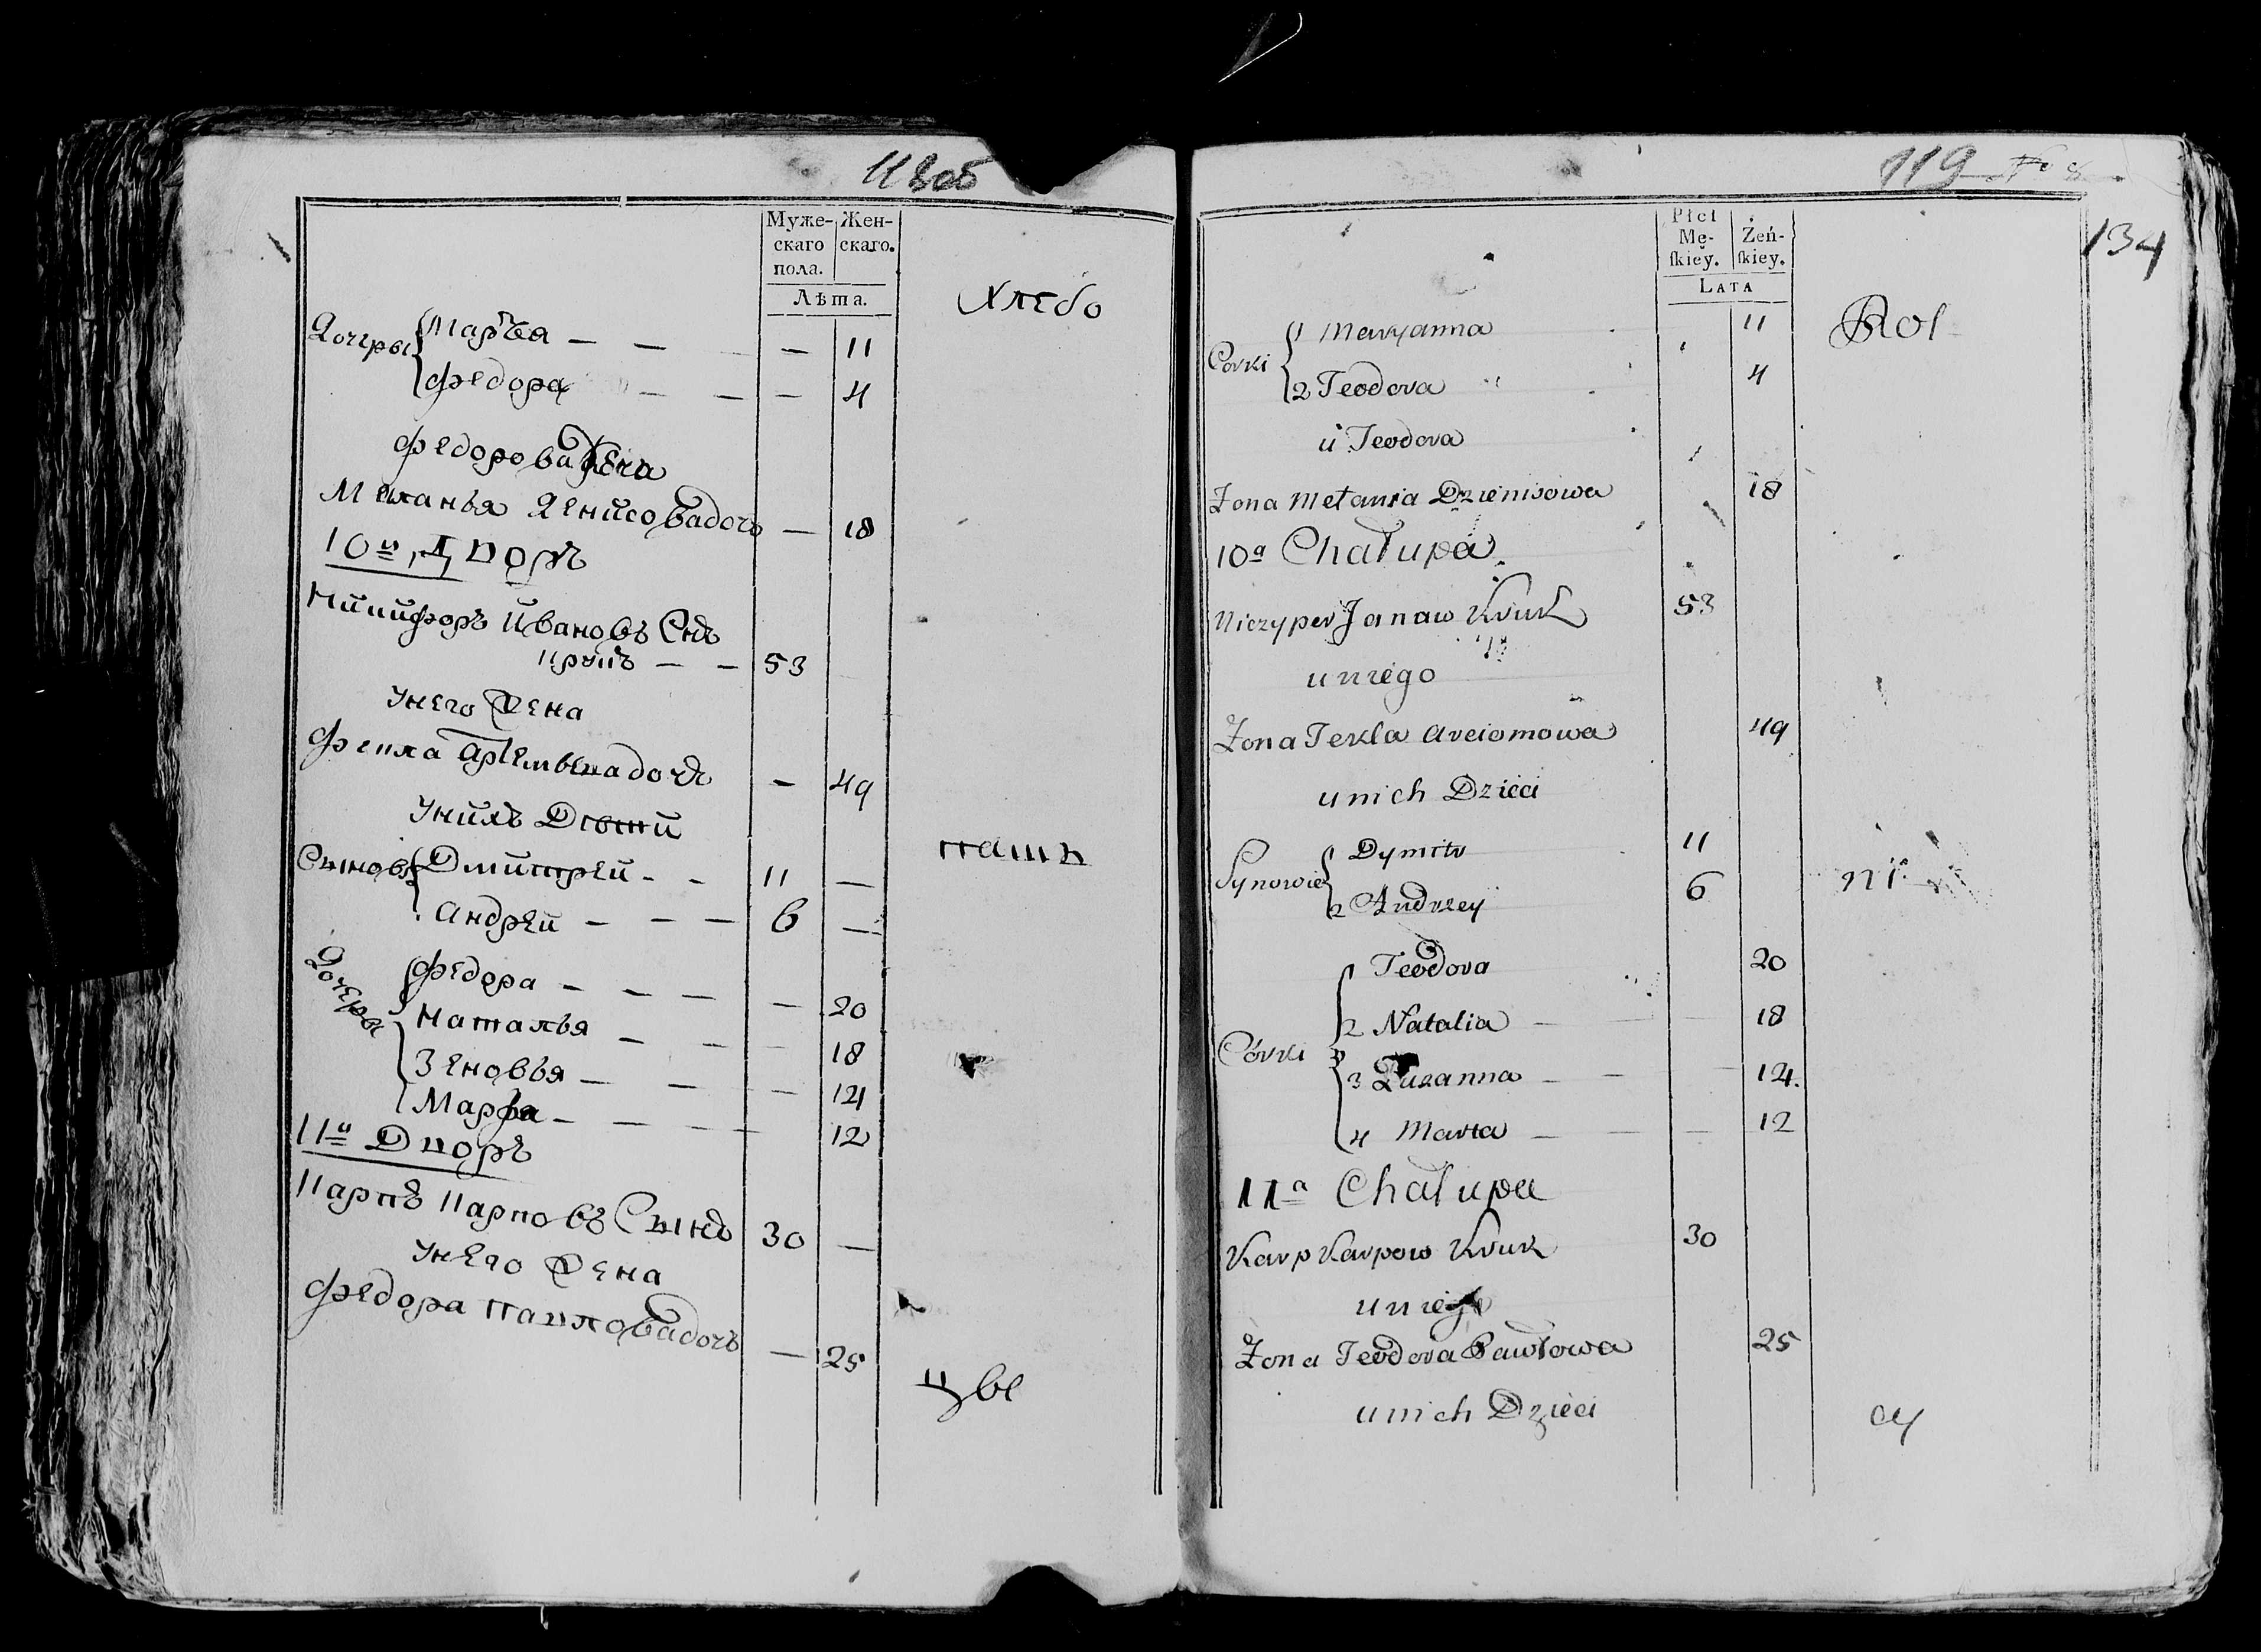 118об
Муже- Жен-
скаго скаго.
пола.
Лѣта.
Хлебо
Дочеры Марья — — — 11
Федора — — — 4
Федорова жена
Меланья Денисова дочь — 18
10й Дворъ
Никифоръ Ивановъ Снъ
крукъ — — 53
Унего Жена
Фекла Артемьева дочь — 49
Унихъ Дѣти
пашъ
Сыновья Дмитрей - - 11 —
Андрей — — — 6 —
Дочеры Федора — — — — 20
Наталья — — — 18
Зеновья — — — 14
Марфа — — — — 12
11й Дворъ
Карпъ Карповъ Сынъ 30 —
Унего Жена
Федора павлова дочь — 25
цве
119
134
Płci
Mę- Żeń-
ſkiey. ſkiey.
LATA
Rol
Corki 1 Maryanna 11
2 Teodora 4
u Teodora
Zona Mełania Dzienisowa 18
10a Chałupa
Niczyper Janaw Kruk 53
u niego
Żona Tekla Arciomowa 49
u nich Dzieci
Synowie 1 Dymitr 11
2 Andrzey 6
ni
Córki 1 Teodora 20
2 Natalia — 18
3 Zuzanna — — 14.
4 Marta — — — 12
11a Chałupa
Karp Karpow Kruk 30
u niego
Żona Teodora Pawłowa 25
u nich Dzieci
cy